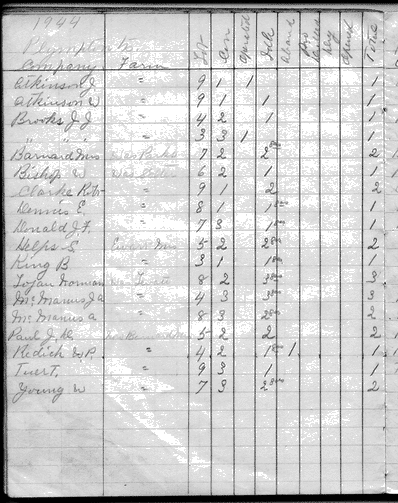 1944
Plympton
Company Farm Lot Con Operated Idle Aband Dry Total
Atkinson J " 9 1 1 1
Atkinson W " 9 1 1 1
Brooks J J " 4 2 1 1
" " " 3 3 1 1
Barnard Mrs 7 2 2 2
Bishop W 6 2 1 1
Clarke Robt 9 1 2 2
Dennis E. " 8 1 1 1
Donald J F. " 7 3 1 1
Helps S 5 2 2 2
King B " 3 1 1 1
Logan Norman 8 2 3 3
McManus J A " 4 3 3 3
McManus A " 8 3 2 2
Paul J. 5 2 2 2
Redick W P. " 4 2 1 1 1
" 9 3 1 1
Young W " 7 3 2 2